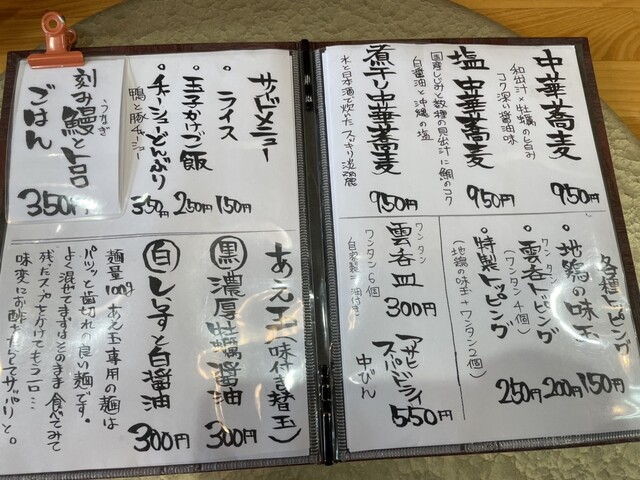 中華蕎麦 950円
和出汁×牡蠣の旨み
コク深い醤油味
塩中華蕎麦 950円
国産しじみと数種の貝出汁に鯛のコク
白醤油と沖縄の塩
煮干し中華蕎麦 950円
水と日本酒で炊いたスッキリ淡麗
各種トッピング
・地鶏の味玉 150円
・雲呑トッピング 200円
ワンタン
(ワンタン4個)
・特製トッピング 250円
(地鶏の味玉+ワンタン2個)
雲呑皿 300円
ワンタン
ワンタン6個
アサヒスーパードライ 550円
中びん
サイドメニュー
・ライス 150円
・玉子かけご飯 250円
・チャーシューどんぶり 350円
鴨と豚チャーシュー
刻み鰻とトロロ
うなぎ
ごはん
350円
あえ玉(味付き替玉)
黒 濃厚牡蠣醤油 300円
白 しらすと白醤油 300円
麺量100g あえ玉専用の麺は
パツッと歯切れの良い麺です。
よく混ぜてまずはそのまま食べてみて
残ったスープをかけてもう一口…
味変にお酢たらしてサッパリと。